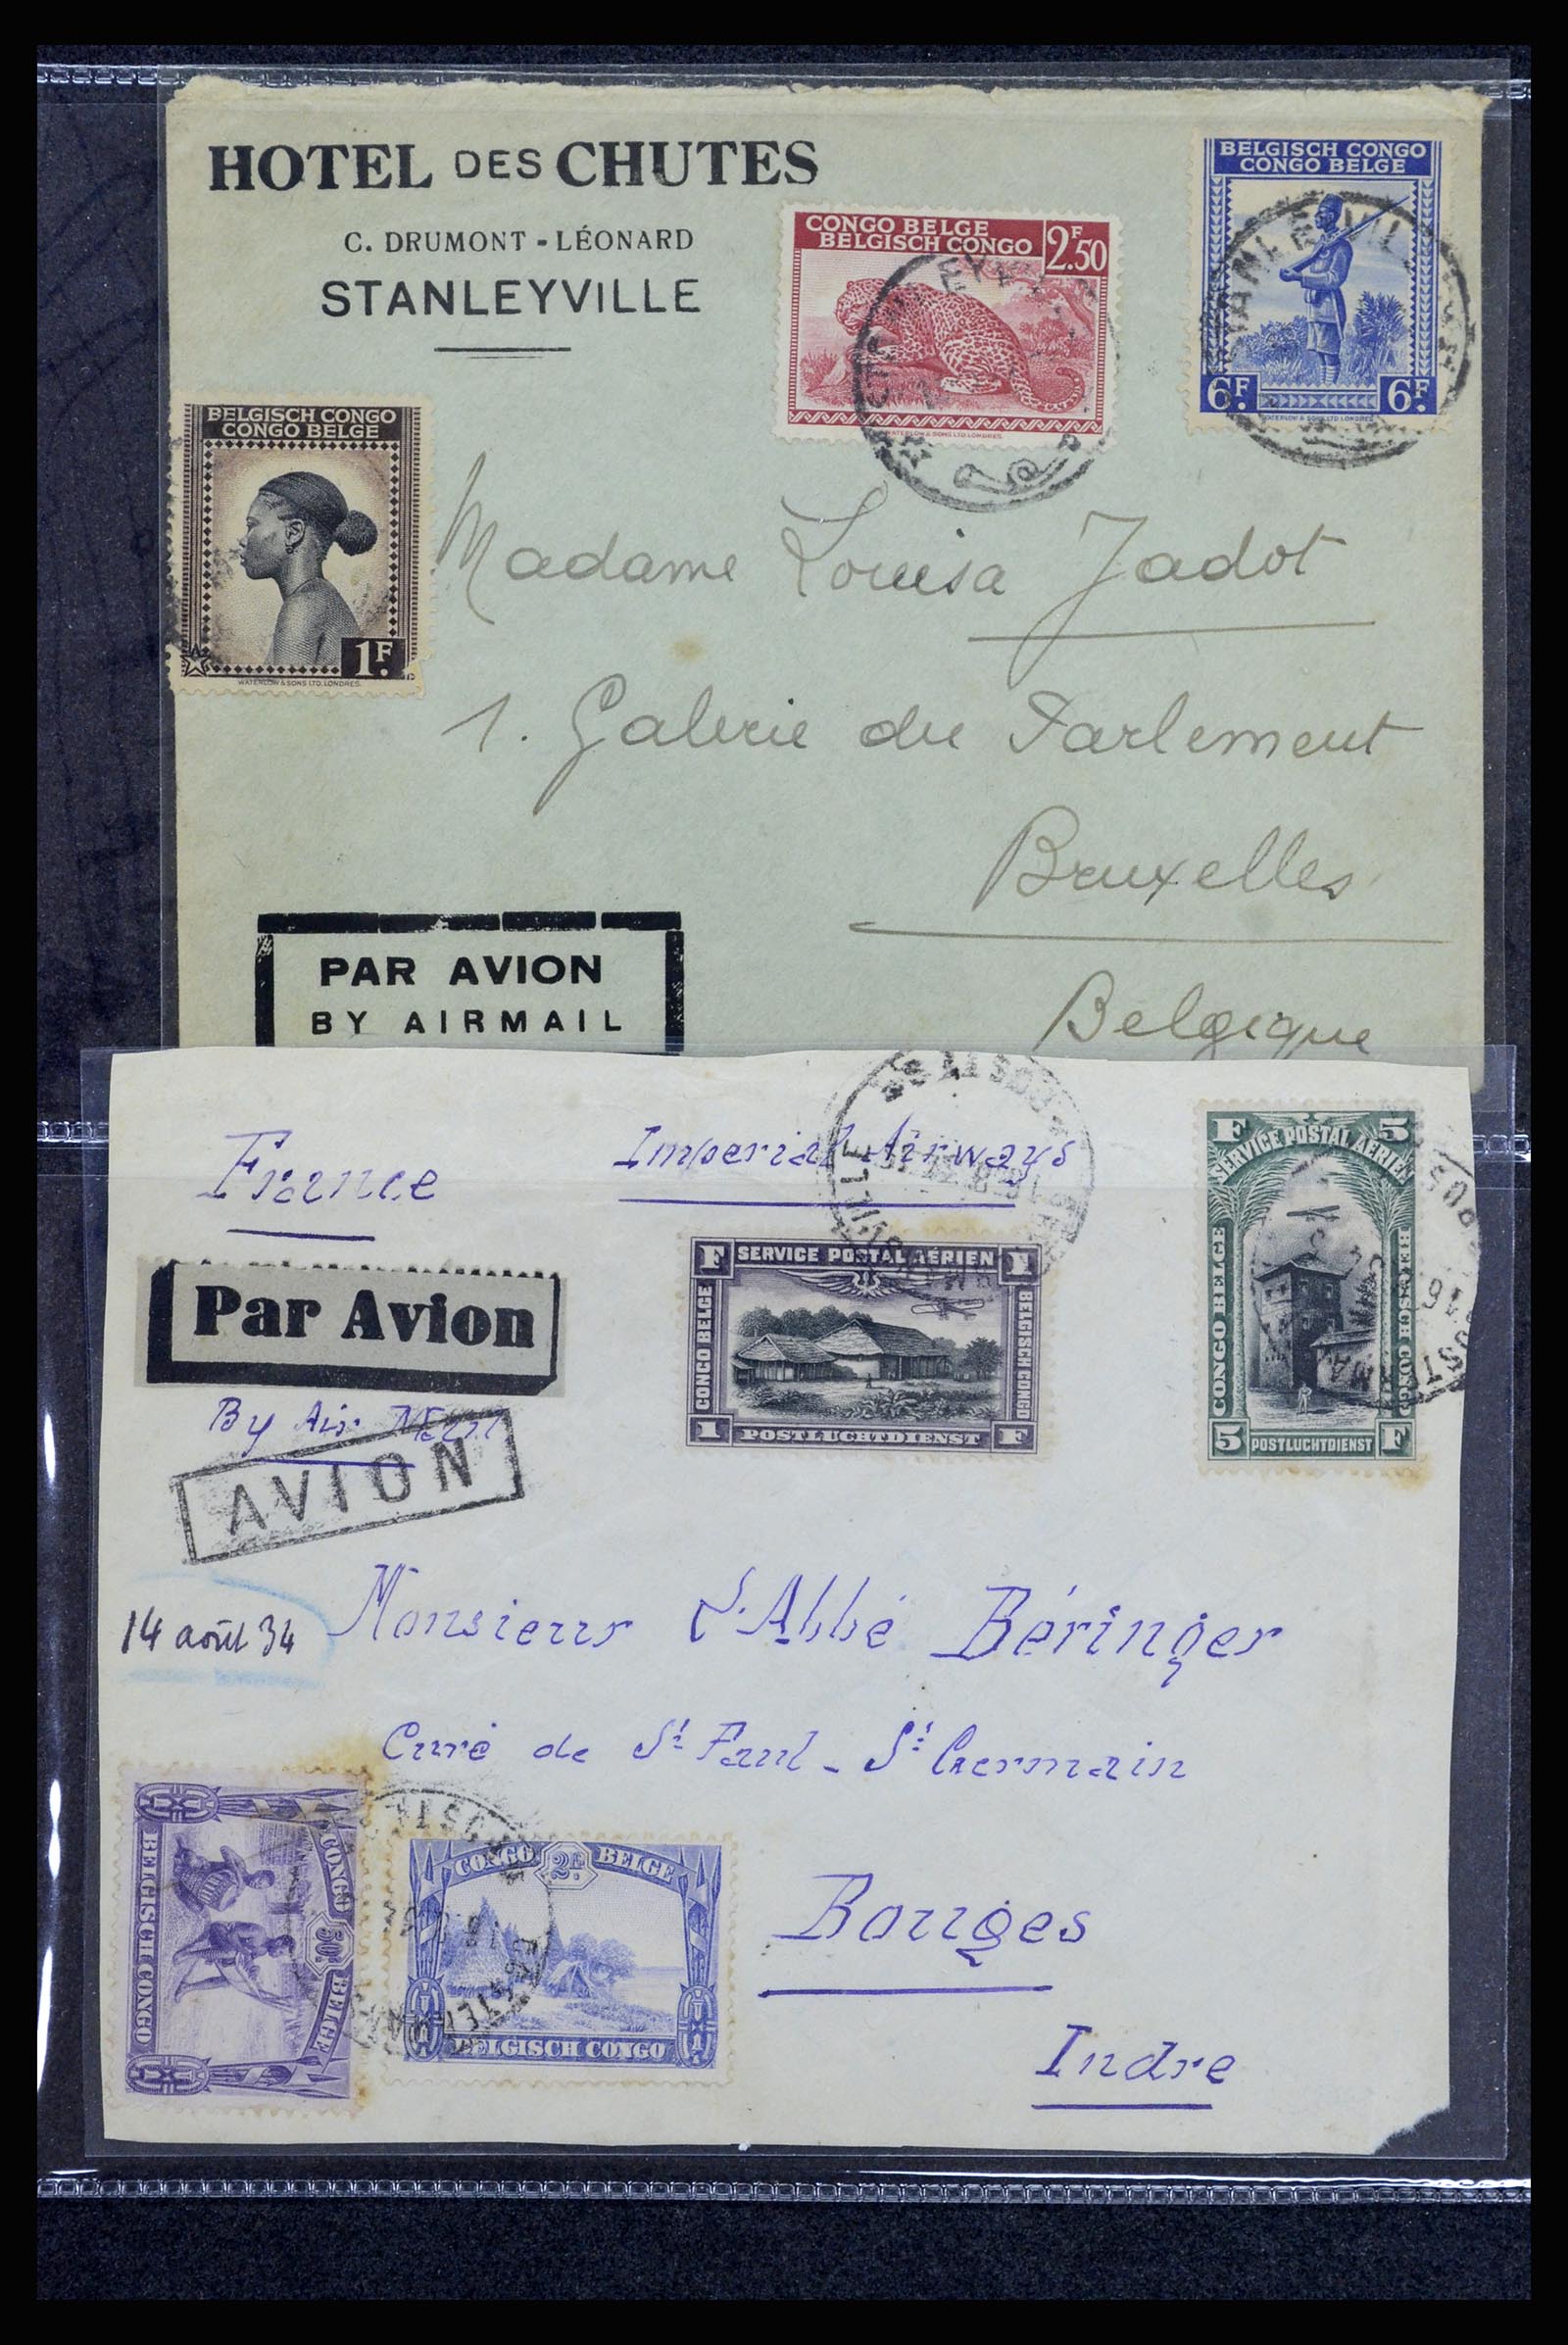 HOTEL DES CHUTES
C. DRUMONT - LÉONARD
STANLEYVILLE
CONGO BELGE
BELGISCH CONGO
2F.50
WATERLOW & SONS LTD. LONDRES.
BELGISCH CONGO
CONGO BELGE
6F. 6F.
WATERLOW & SONS LTD. LONDRES
BELGISCH CONGO
CONGO BELGE
1F.
WATERLOW & SONS LTD. LONDRES.
Madame Louisa Jadot
1. Galerie du Parlement
Bruxelles
Belgique
PAR AVION
BY AIRMAIL
France
Imperial Airways
Par Avion
By Air Mail
AVION
F SERVICE POSTAL AÉRIEN 1
CONGO BELGE
BELGISCH CONGO
1 POSTLUCHTDIENST F
F 5
SERVICE POSTAL AÉRIEN
CONGO BELGE
BELGISCH CONGO
5 POSTLUCHTDIENST F
14 août 34
Monsieur L'Abbé Béringer
Curé de St Paul - St Germain
Bouges
Indre
CONGO BELGE
50c
BELGISCH CONGO
CONGO 2F BELGE
BELGISCH CONGO